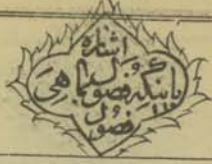 اشاره
باینکه فصول بما هی
فصول